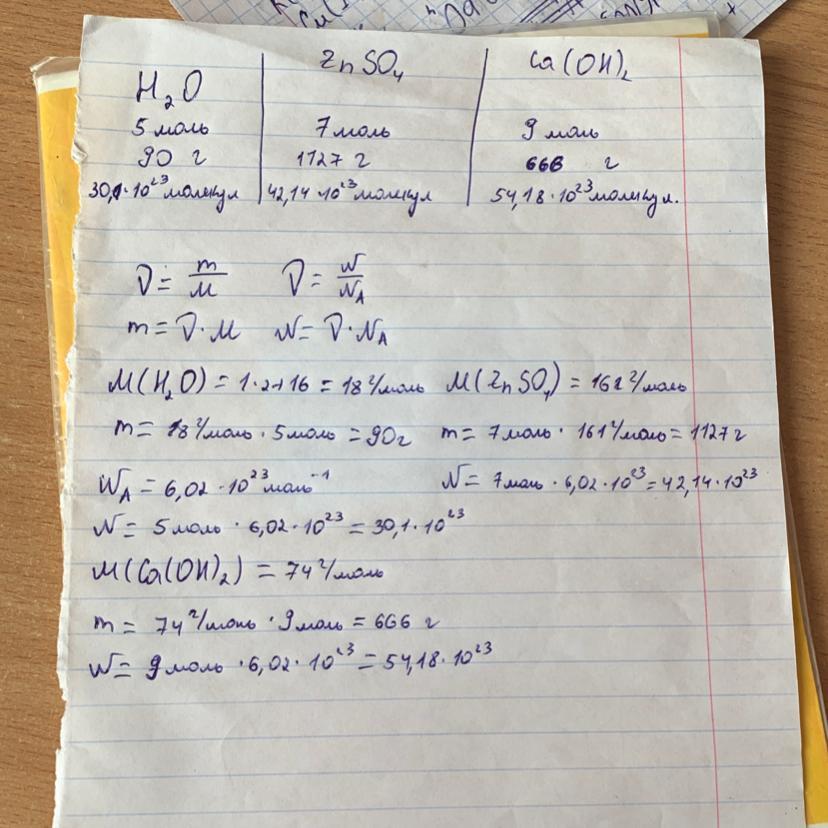 H₂O | ZnSO₄ | Ca(OH)₂
5 моль | 7 моль | 9 моль
90 г | 1127 г | 666 г
30,1·10²³ молекул | 42,14·10²³ молекул | 54,18·10²³ молекул.
ν = m/M ν = N/N_A
m = ν·M N = ν·N_A
M(H₂O) = 1·2+16 = 18 г/моль M(ZnSO₄) = 161 г/моль
m = 18 г/моль · 5 моль = 90 г m = 7 моль · 161 г/моль = 1127 г
N_A = 6,02·10²³ моль⁻¹ N = 7 моль · 6,02·10²³ = 42,14·10²³
N = 5 моль · 6,02·10²³ = 30,1·10²³
M(Ca(OH)₂) = 74 г/моль
m = 74 г/моль · 9 моль = 666 г
N = 9 моль · 6,02·10²³ = 54,18·10²³